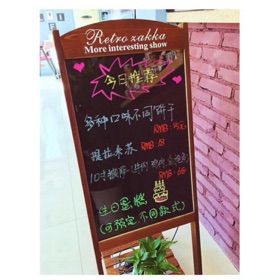 Retro zakka
More interesting show
今日推荐
多种口味不同饼干
RMB:
提拉米苏 RMB:18
10寸披萨
RMB:68
生日蛋糕
(可预定,不同款式)